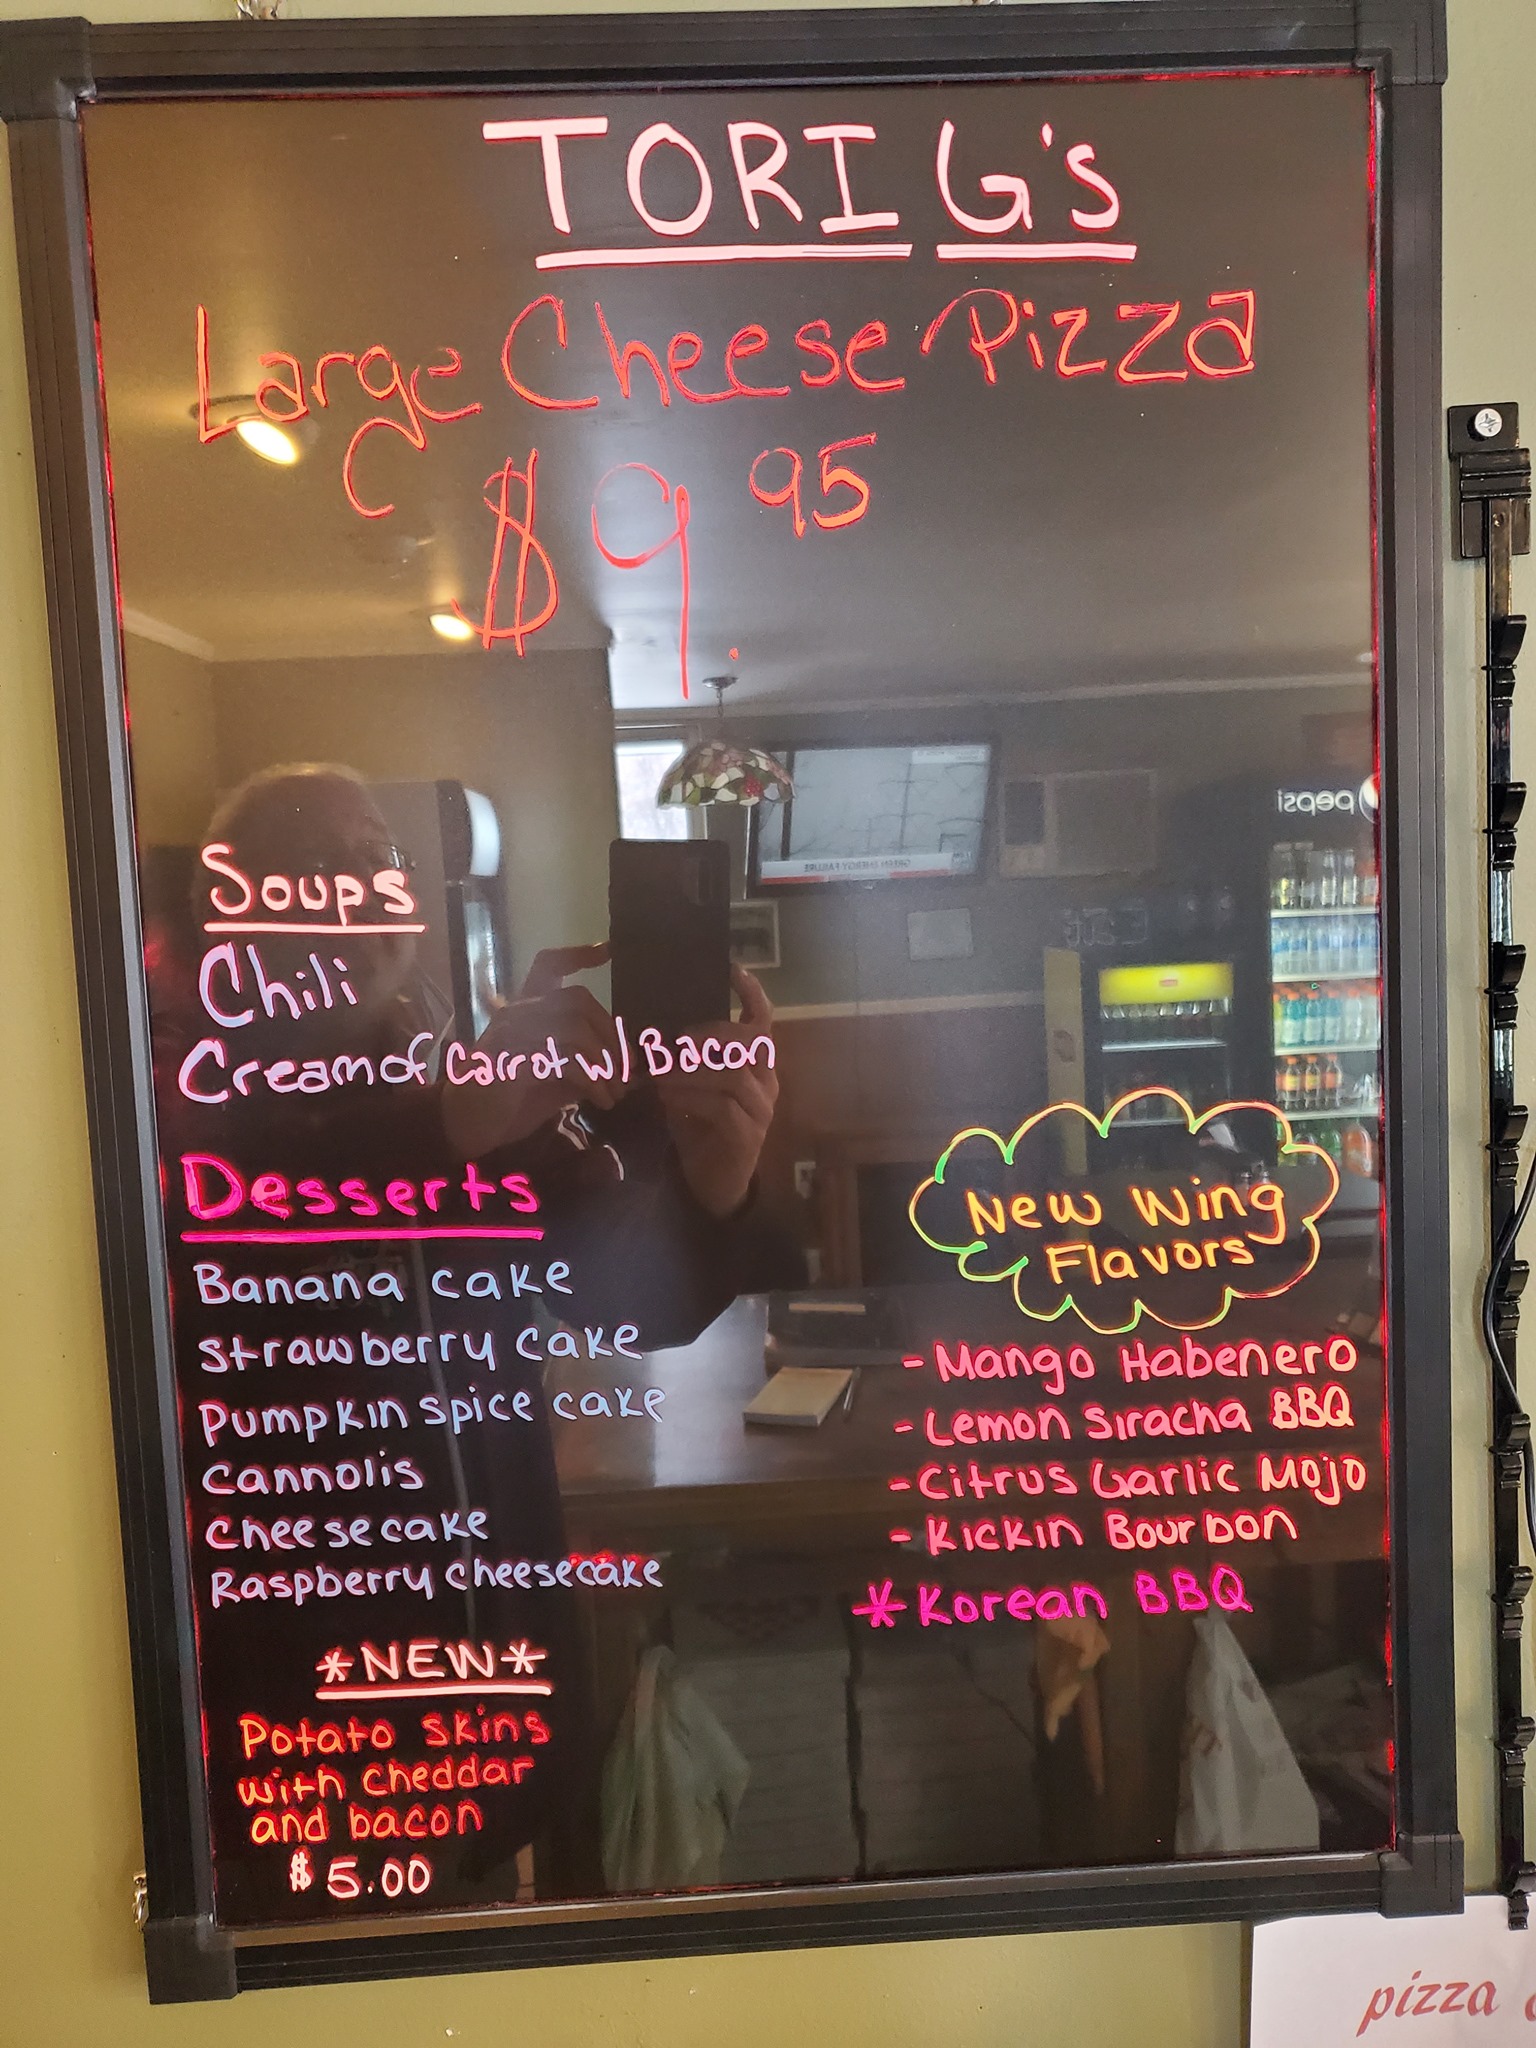 TORI G's
Large Cheese Pizza
$9.95
Soups
Chili
Cream of Carrot w/ Bacon
Desserts
Banana cake
strawberry cake
Pumpkin spice cake
Cannolis
Cheesecake
Raspberry cheesecake
*NEW*
Potato skins
with cheddar
and bacon
$5.00
New Wing
Flavors
- Mango Habenero
- Lemon Siracha BBQ
- Citrus Garlic Mojo
- Kickin Bourbon
* Korean BBQ
pepsi
GREEN ENERGY FAILURE
pizza